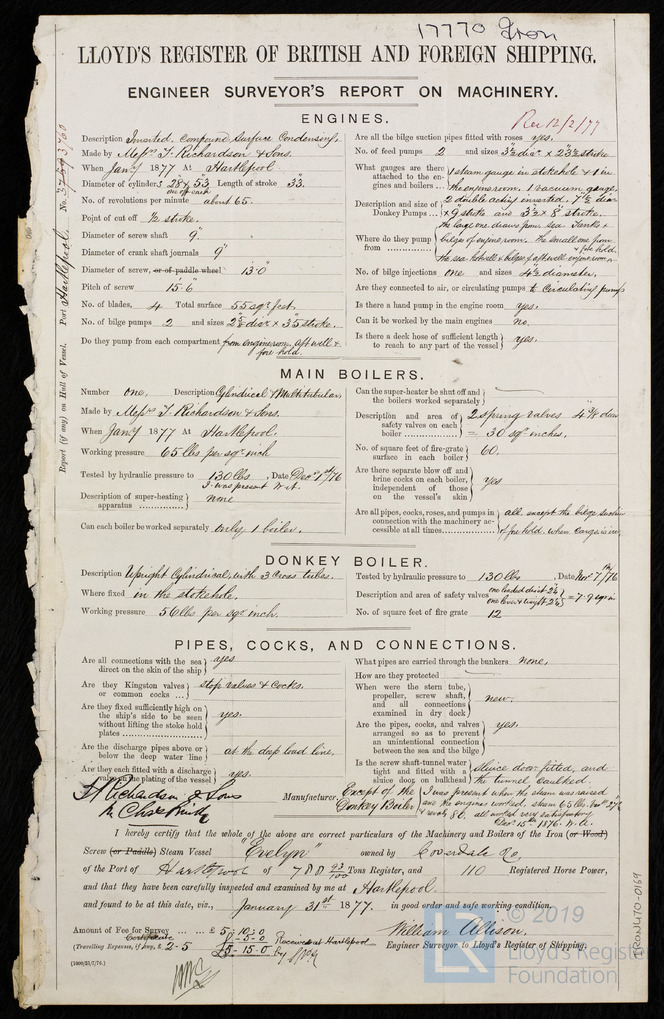 17770 Iron
LLOYD'S REGISTER OF BRITISH AND FOREIGN SHIPPING.
ENGINEER SURVEYOR'S REPORT ON MACHINERY.
Rec 12/2/77
ENGINES.
Description Inverted. Compound Surface Condensing,
Made by Messrs T. Richardson & Sons.
When Jany 1877 At Hartlepool.
Diameter of cylinders 28 & 53 Length of stroke 33.
one off each
No. of revolutions per minute about 65.
Point of cut off ½ stroke.
Diameter of screw shaft 9"
Diameter of crank shaft journals 9"
Diameter of screw, or of paddle wheel 13.0
Pitch of screw 15.6
No. of blades, 4 Total surface 55 sqr feet.
No. of bilge pumps 2 and sizes diar x 35 stroke.
Do they pump from each compartment from engine room, aft well & fore hold.
Are all the bilge suction pipes fitted with roses yes.
No. of feed pumps 2 and sizes 3½ diar x 23½ stroke
What gauges are there attached to the engines and boilers ... 1 steam gauge in stokehole & 1 in the engine room. 1 vacuum gauge.
Description and size of Donkey Pumps ... 2 double acting inverted. 7½ diar x 9 stroke and 3½ x 8 stroke.
Where do they pump from ... the large one draws from sea Tanks & bilge of engine room. The small one from the sea hotwell & bilge of aft well engine room & fore hold.
No. of bilge injections one and sizes 4½ diameter.
Are they connected to air, or circulating pumps to Circulating pumps
Is there a hand pump in the engine room yes.
Can it be worked by the main engines no.
Is there a deck hose of sufficient length to reach to any part of the vessel yes.
MAIN BOILERS.
Number one, Description Cylindrical & Multitubular,
Made by Messrs T. Richardson & Sons.
When Jany 1877 At Hartlepool.
Working pressure 65 lbs per sqr inch
Tested by hydraulic pressure to 130 lbs, Date Decr 1st/76
I was present W.A.
Description of super-heating apparatus ... none
Can each boiler be worked separately only 1 boiler.
Can the super-heater be shut off and the boilers worked separately
Description and area of safety valves on each boiler ... 2 spring valves 4⅜ diar = 30 sqr inches.
No. of square feet of fire-grate surface in each boiler 60.
Are there separate blow off and brine cocks on each boiler, independent of those on the vessel's skin yes
Are all pipes, cocks, roses, and pumps in connection with the machinery accessible at all times ... all except the bilge suction of fre hold when cargo is in
DONKEY BOILER.
Description Upright Cylindrical, with 3 cross tubes.
Where fixed in the stokehole.
Working pressure 56 lbs per sqr inch.
Tested by hydraulic pressure to 130 lbs, Date Novr 7th/76
Description and area of safety valves one loaded direct 2¼ one lever & weight 2¼ = 7.9 sqr in
No. of square feet of fire grate 12
PIPES, COCKS, AND CONNECTIONS.
Are all connections with the sea direct on the skin of the ship yes.
Are they Kingston valves or common cocks ... stop valves & cocks.
Are they fixed sufficiently high on the ship's side to be seen without lifting the stoke hold plates ... yes.
Are the discharge pipes above or below the deep water line at the deep load line,
Are they each fitted with a discharge valve on the plating of the vessel yes.
What pipes are carried through the bunkers none,
How are they protected
When were the stern tube, propeller, screw shaft, and all connections examined in dry dock new.
Are the pipes, cocks, and valves arranged so as to prevent an unintentional connection between the sea and the bilge yes.
Is the screw shaft-tunnel water tight and fitted with a sluice door on bulkhead Sluice door fitted, and the tunnel caulked.
T. Richardson & Sons
Manufacturer. Except of the Donkey Boiler
I was present when the steam was raised and the engines worked. steam 65 lbs. revs 80. all worked very satisfactory. Decr 15th 1876. W.A.
I hereby certify that the whole of the above are correct particulars of the Machinery and Boilers of the Iron (or Wood)
Screw (or Paddle) Steam Vessel "Evelyn" owned by Coverdale & Co,
of the Port of Hartlepool of 700 93/100 Tons Register, and 110 Registered Horse Power,
and that they have been carefully inspected and examined by me at Hartlepool.
and found to be at this date, viz., January 31st 1877. in good order and safe working condition.
Amount of Fee for Survey ... £ 5.10.0
Certificate 0-5-0
(Travelling Expenses, if any, £ 2-5
£5-15.0
Received at Hartlepool by
William Allison.
Engineer Surveyor to Lloyd's Register of Shipping.
[1000/25/7/76.]
Report (if any) on Hull of Vessel. Port Hartlepool. No.
IRON470-0169
LR © 2019
Lloyd's Register
Foundation